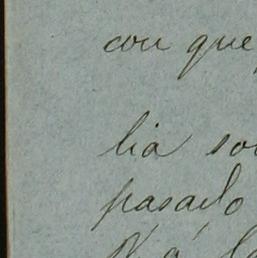 con que
lia so
pasado